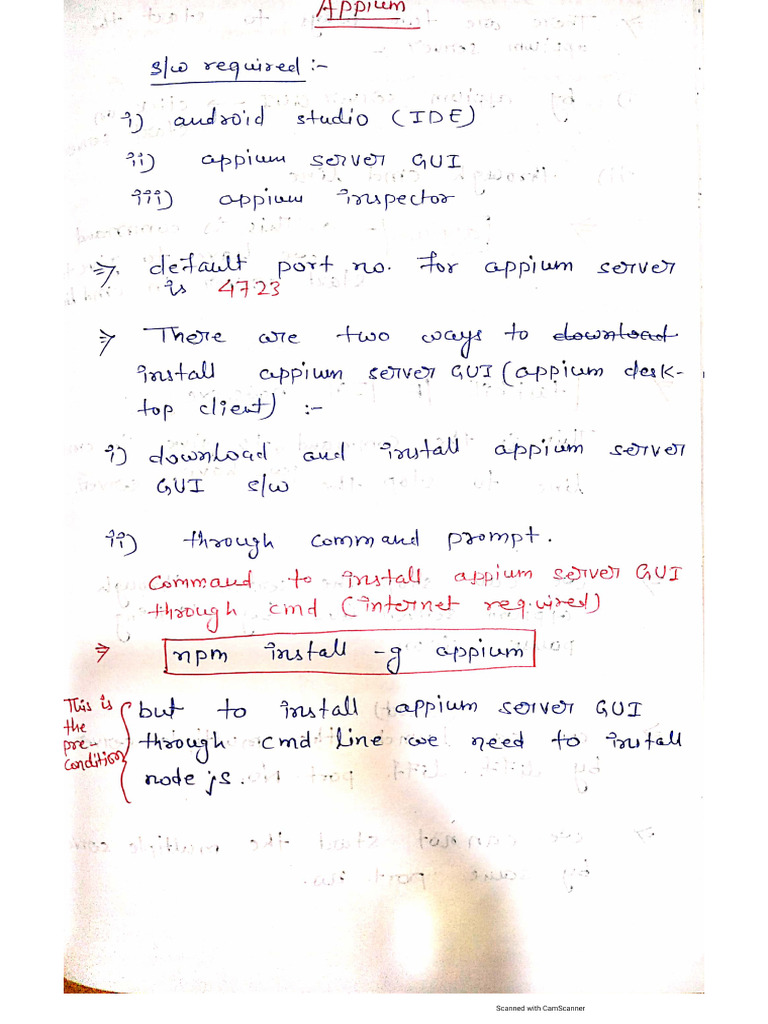 Appium
s/w required :-
i) android studio (IDE)
ii) appium server GUI
iii) appium inspector
⇒ default port no. for appium server
is 4723
⇒ There are two ways to download
install appium server GUI (appium desk-
top client) :-
i) download and install appium server
GUI s/w
ii) through command prompt.
Command to install appium server GUI
through cmd. (internet required)
⇒ npm install -g appium
This is
the
pre-
condition
but to install appium server GUI
through cmd line we need to install
node js.
Scanned with CamScanner